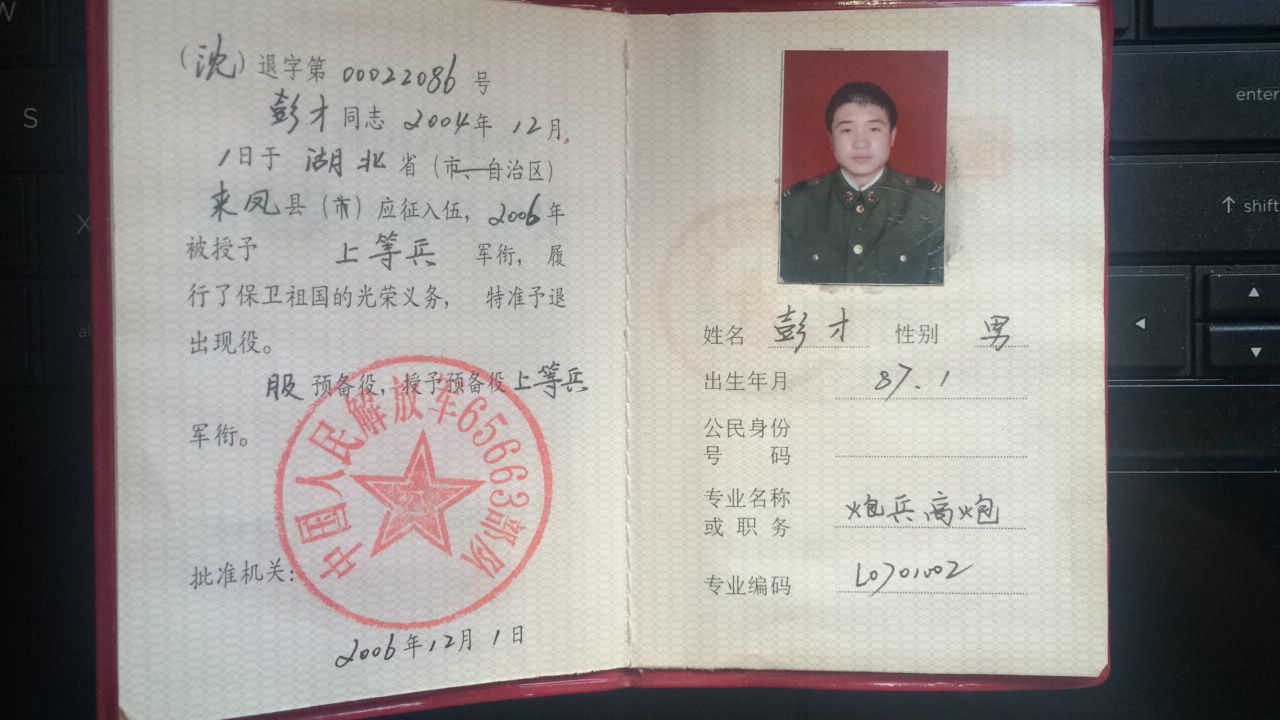 （沈）退字第 00022086 号
彭才 同志 2004年 12月
1日于 湖北 省（市、自治区）
来凤县（市）应征入伍，2006年
被授予 上等兵 军衔，履
行了保卫祖国的光荣义务， 特准予退
出现役。
服 预备役，授予预备役上等兵
军衔。
中国人民解放军65663部队
批准机关：
2006年12月1日
姓名 彭才 性别 男
出生年月 87.1
公民身份
号 码
专业名称 炮兵高炮
或职务
专业编码
enter
shift
S
X
W